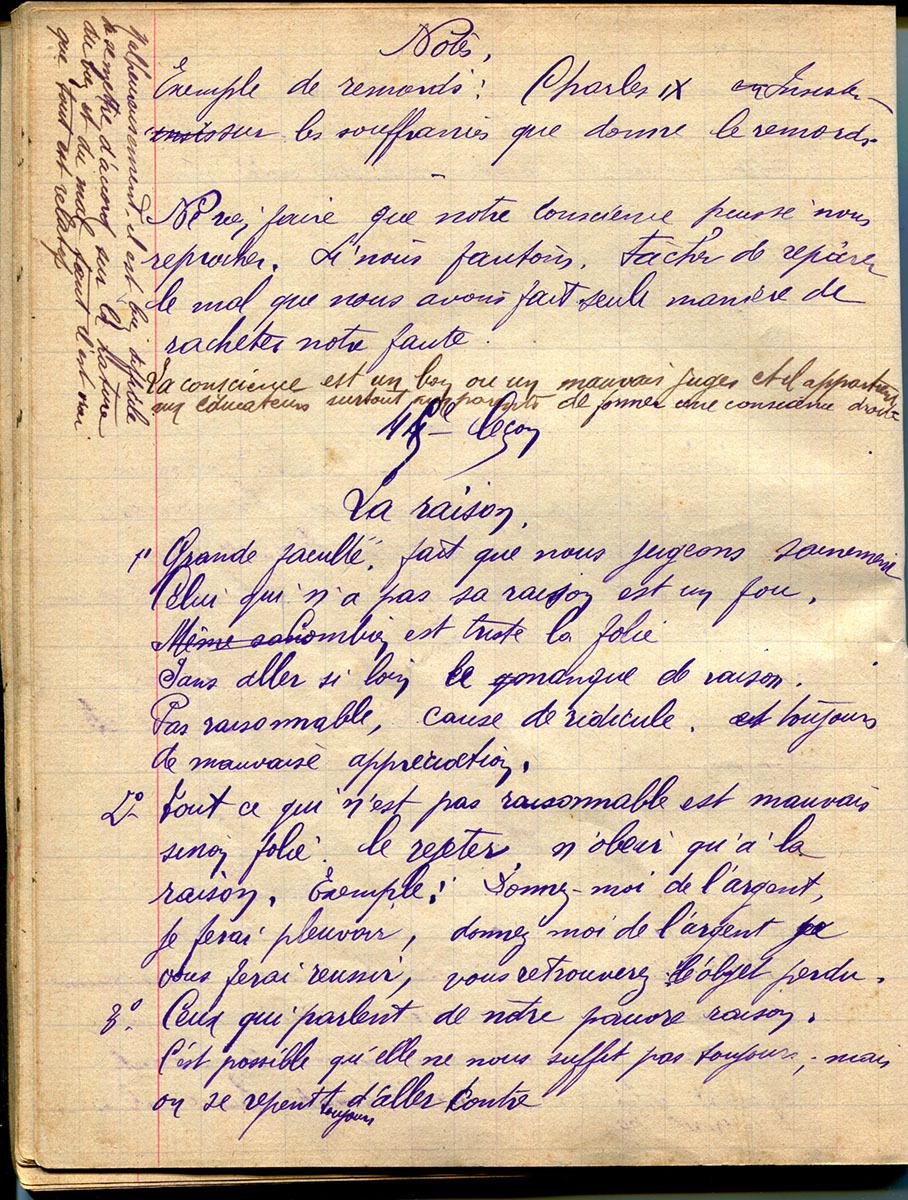 Notes,
Exemple de remords: Charles IX Insister
sur les souffrances que donne le remords
Ne rien faire que notre conscience puisse nous
reprocher. Si nous fautons, tâcher de réparer
le mal que nous avons fait seule manière de
racheter notre faute
La conscience est un bon ou un mauvais juges et il appartient
aux éducateurs surtout aux parents de former une conscience droite
leçon
La raison,
1° Grande faculté, fait que nous jugeons sainement
Celui qui n'a pas sa raison est un fou,
Même combien est triste la folie
Sans aller si loin le manque de raison.
Pas raisonnable, cause de ridicule. et toujours
de mauvaise appréciation,
2° Tout ce qui n'est pas raisonnable est mauvais
sinon folie. le rejeter, n'obéir qu'à la
raison. Exemple: Donnez-moi de l'argent,
je ferai pleuvoir, donnez moi de l'argent je
vous ferai réussir, vous retrouverez l'objet perdu.
3° Ceux qui parlent de notre pauvre raison.
C'est possible qu'elle ne nous suffit pas toujours, mais
on se repent toujours d'aller contre
Malheureusement, il est bien difficile
de se mettre d'accord sur la nature
du bien et du mal tant il est vrai
que tout est relatif